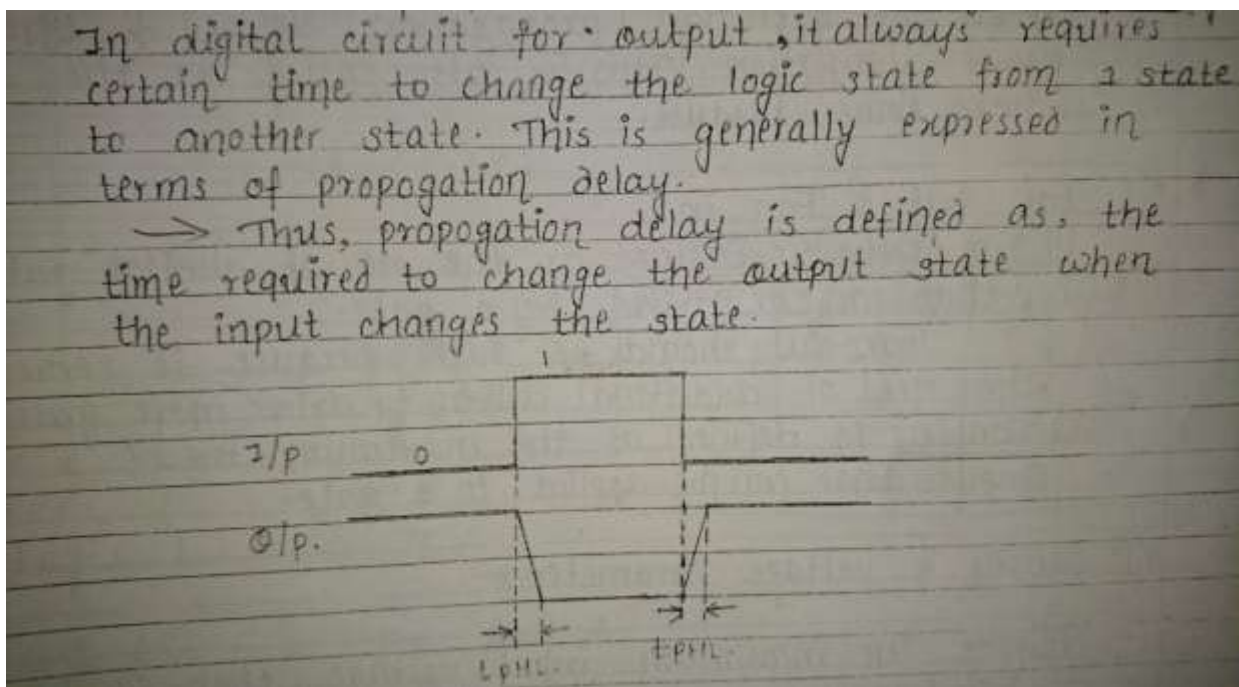 In digital circuit for output, it always requires
certain time to change the logic state from 1 state
to another state. This is generally expressed in
terms of propogation delay.
→ Thus, propogation delay is defined as, the
time required to change the output state when
the input changes the state.
1
I/p 0
O/p.
tpHL.